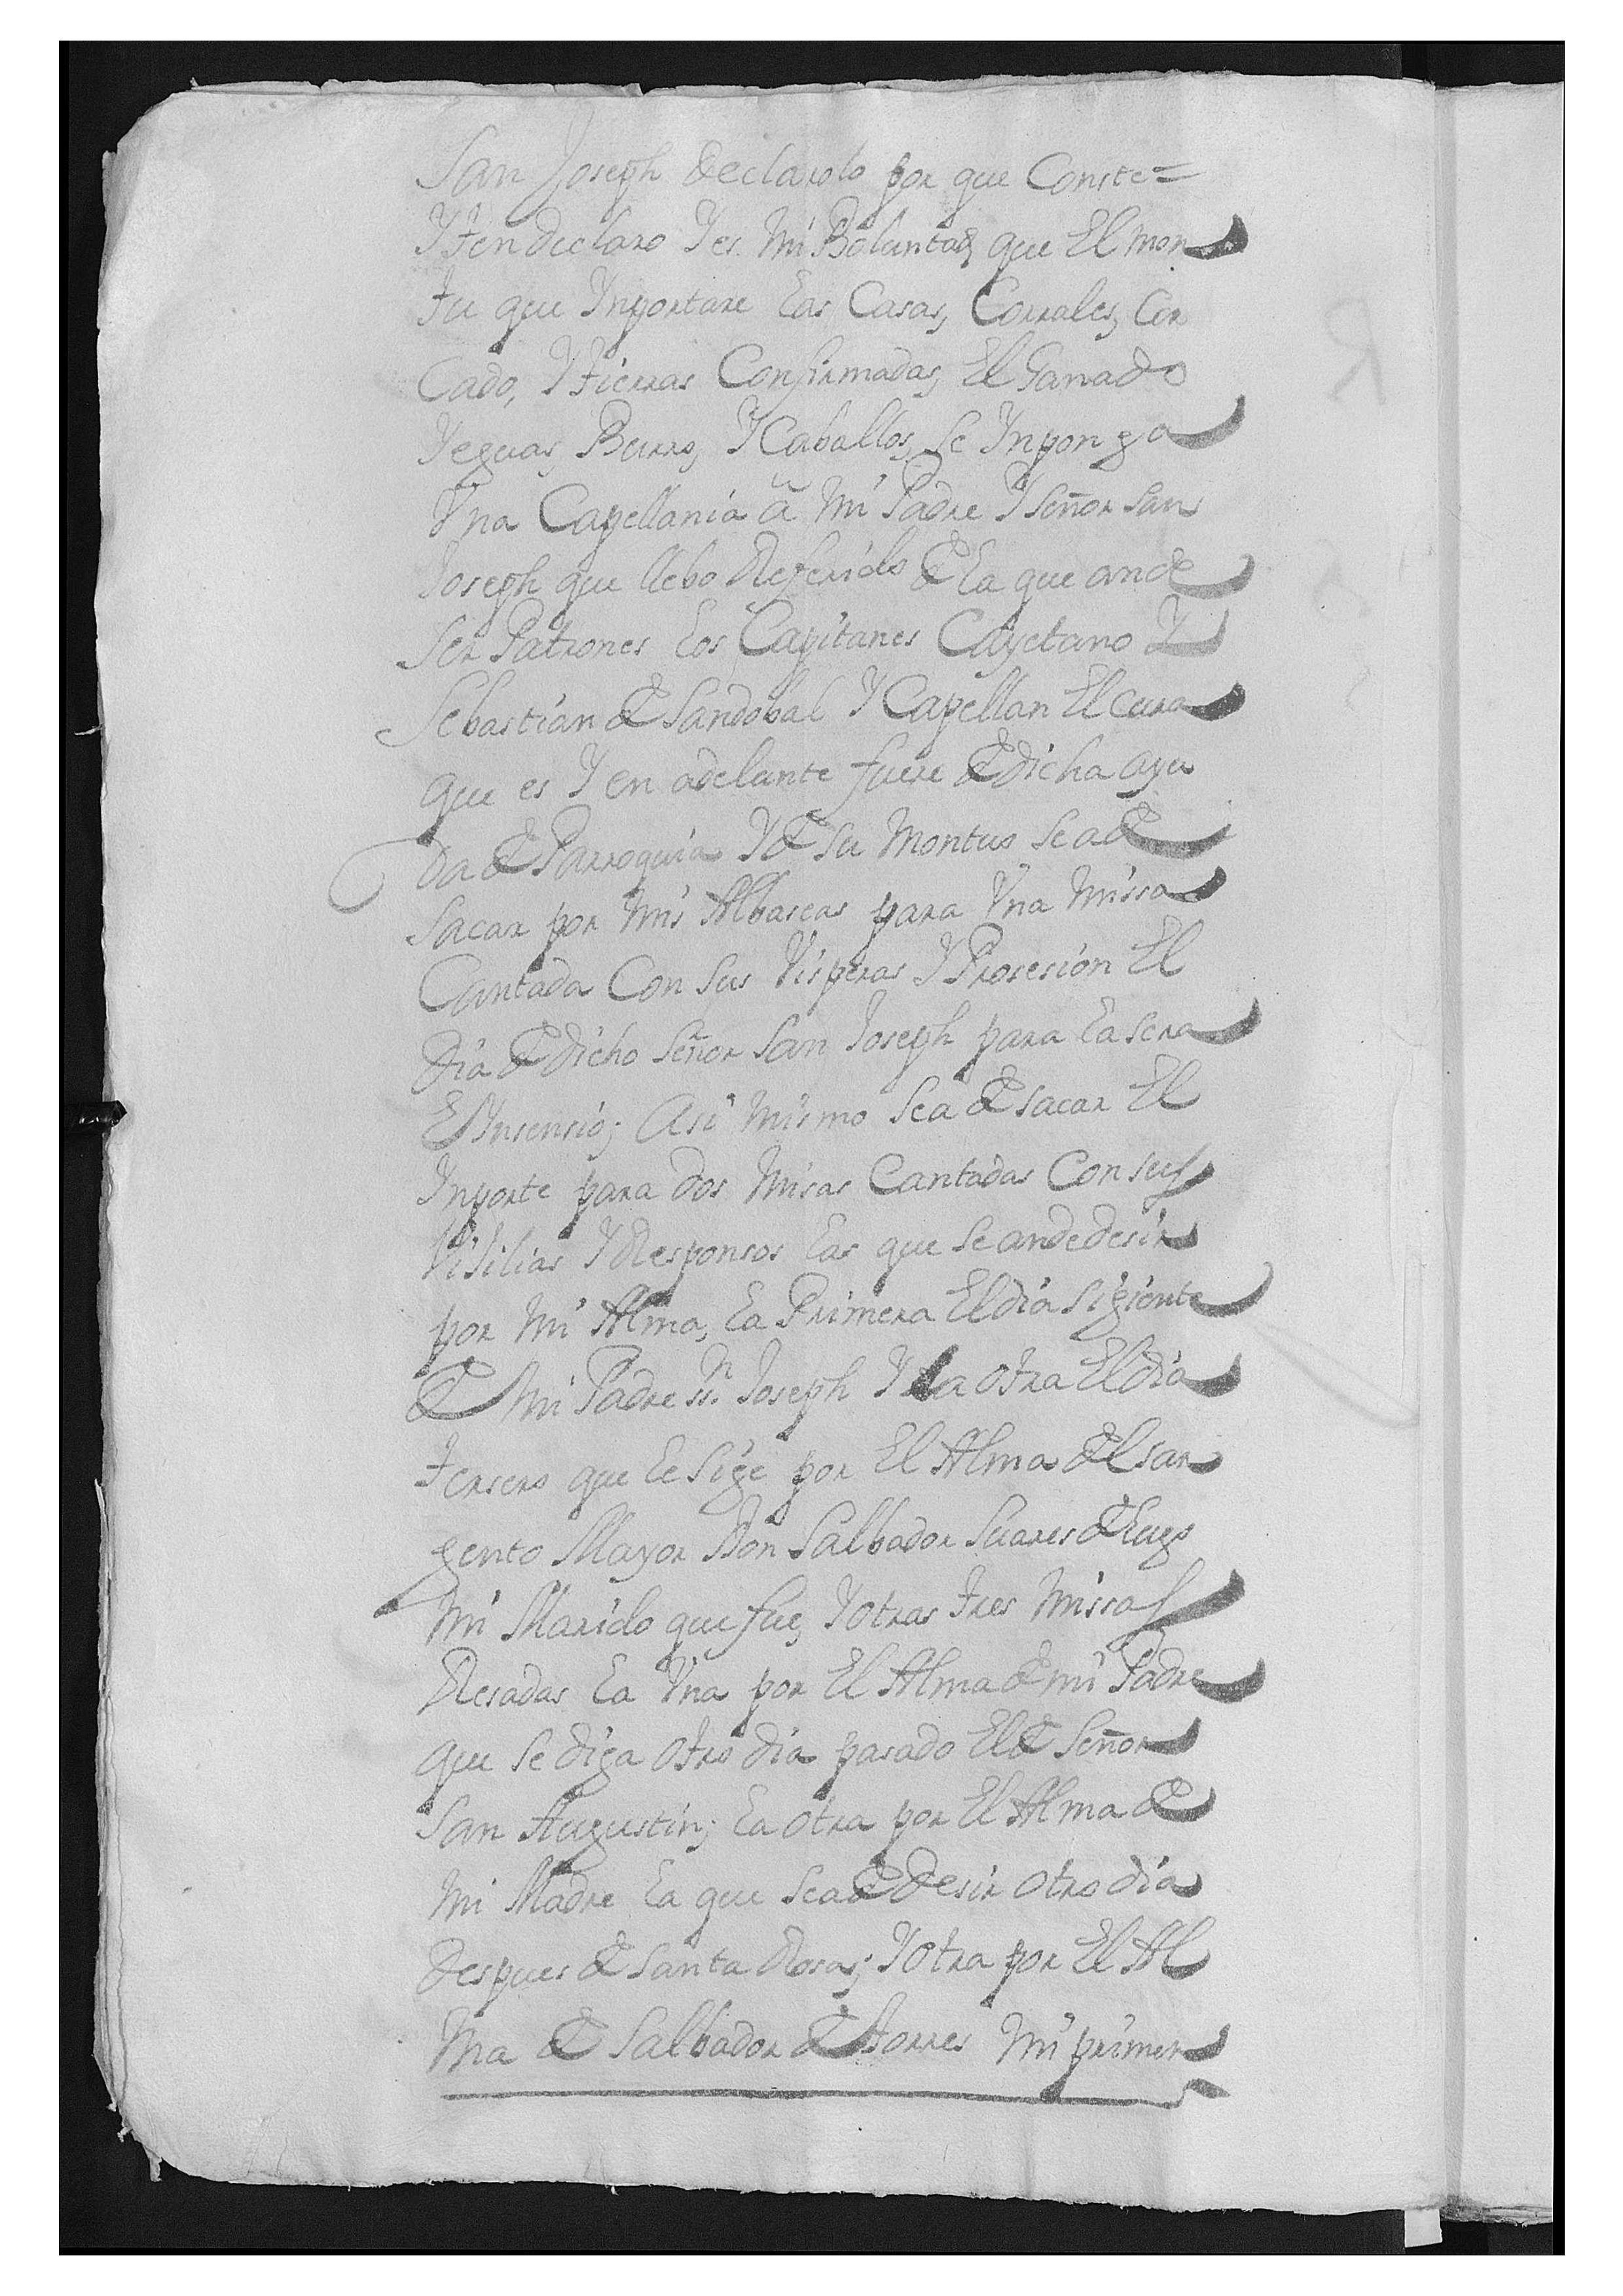 San Joseph declarolo por que Conste=
Yten declaro Y es mi Boluntad, que El mon
tu que Ynportare las Casas, Corrales, Cor
Cado, Y tierras Confirmadas, El Ganado
Yeguas, Burro, Y Caballos, se Ynponga
Vna Capellania â mi Padre Y Señor San
Joseph que llebo Referido de la que an de
Ser Patrones los Capitanes Cayetano Y
Sebastian de Sandobal Y Capellan El Cura
que es Y en adelante fuere de dicha ayu
da de Parroquia Y de su Montuo se a de
Sacar por mis Albaseas para Vna Missa
Cantada Con sus Visperas Y Prosesion El
Dia de dicho Señor San Joseph para la sera
E Ynsensio; Asi mismo se a de sacar El
Ynporte para dos misas Cantadas Con sus
Vijilias Y Responsos las que se an de desir
por mi Alma, la Primera El dia sigiente
de mi Padre Sr. Joseph Y la otra El dia
tersero que le Sige por El Alma del Sar
gento Mayor Don Salbador Suares de Lugo
mi Marido que fue, Y otras tres missas
Resadas la Vna por El Alma de mi Padre
que se diga otro dia pasado El de Señor
San Augustin; la otra por El Alma de
mi Madre la que se a de desir otro dia
despues de Santa Rosa; Y otra por El Al
ma de Salbador de torres mi primer